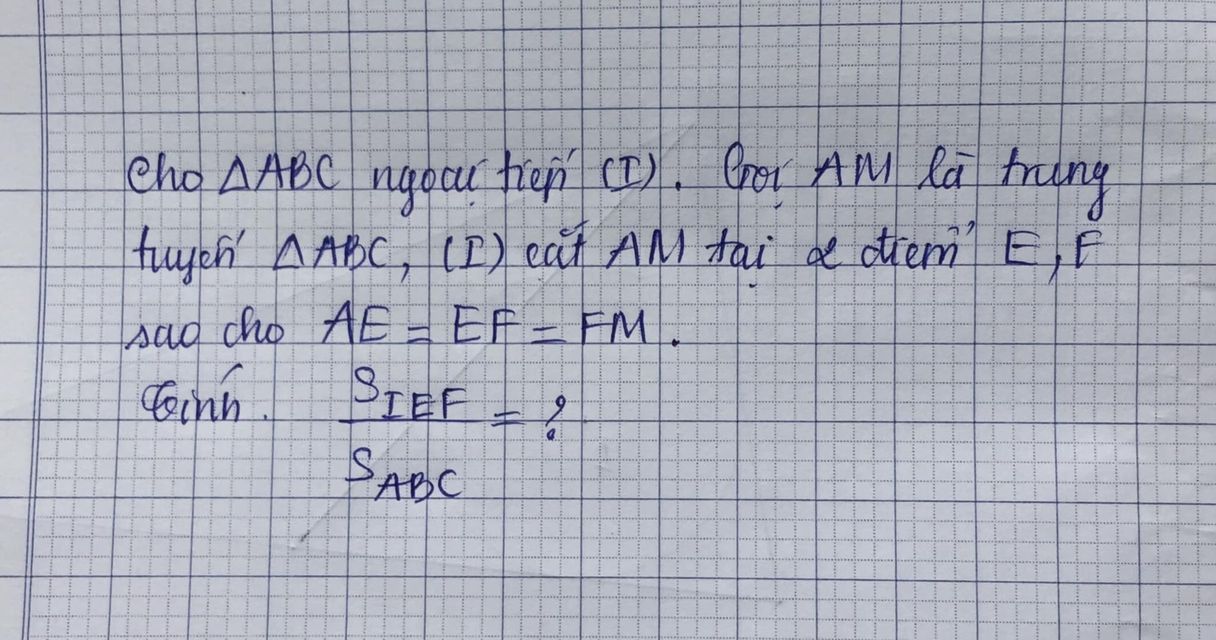 Cho ΔABC ngoại tiếp (I). Gọi AM là trung
tuyến ΔABC, (I) cắt AM tại 2 điểm E, F
sao cho AE = EF = FM.
Tính. S_IEF / S_ABC = ?